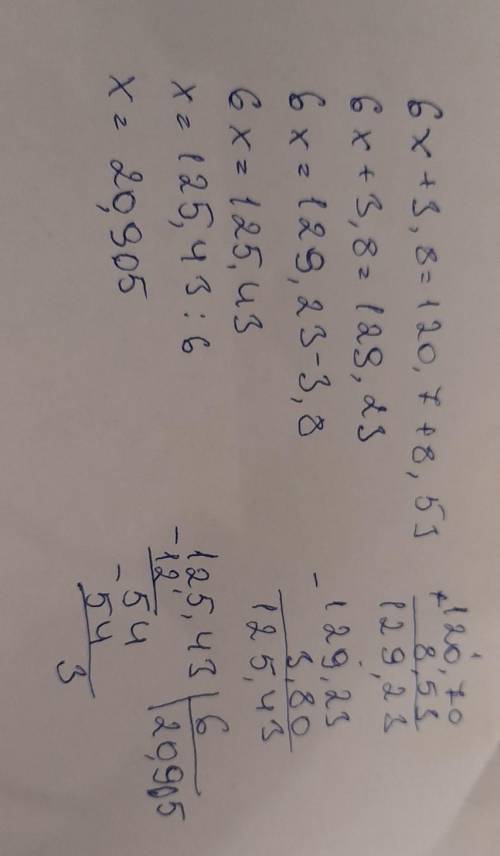 6x+3,8=120,7+8,53
6x+3,8=129,23
6x=129,23-3,8
6x=125,43
x=125,43:6
x=20,905
+120,70
8,53
129,23
-129,23
3,80
125,43
125,43 | 6
-12 | 20,905
54
-54
3